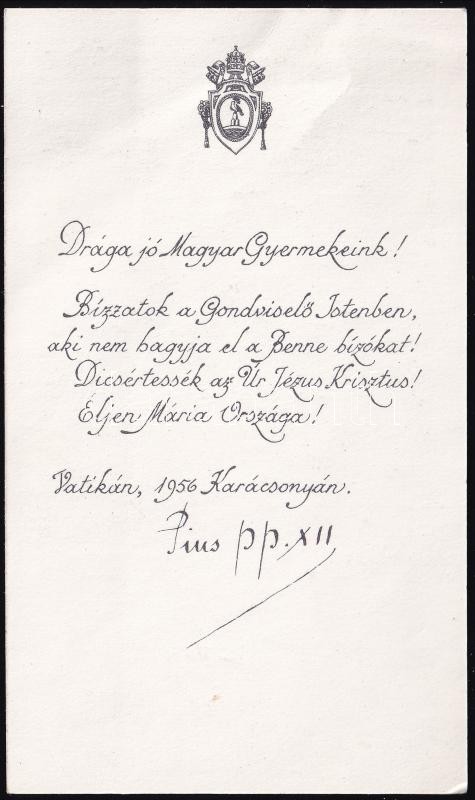 Drága jó Magyar Gyermekeink!
Bízzatok a Gondviselő Istenben,
aki nem hagyja el a Benne bízókat!
Dicsértessék az Úr Jézus Krisztus!
Éljen Mária Országa!
Vatikán, 1956 Karácsonyán.
Pius pp. XII